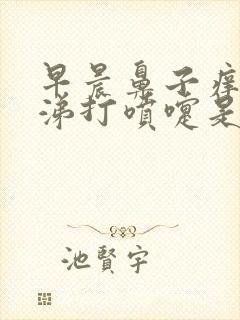 早晨鼻子痒
涕打喷嚏是
池賢宇